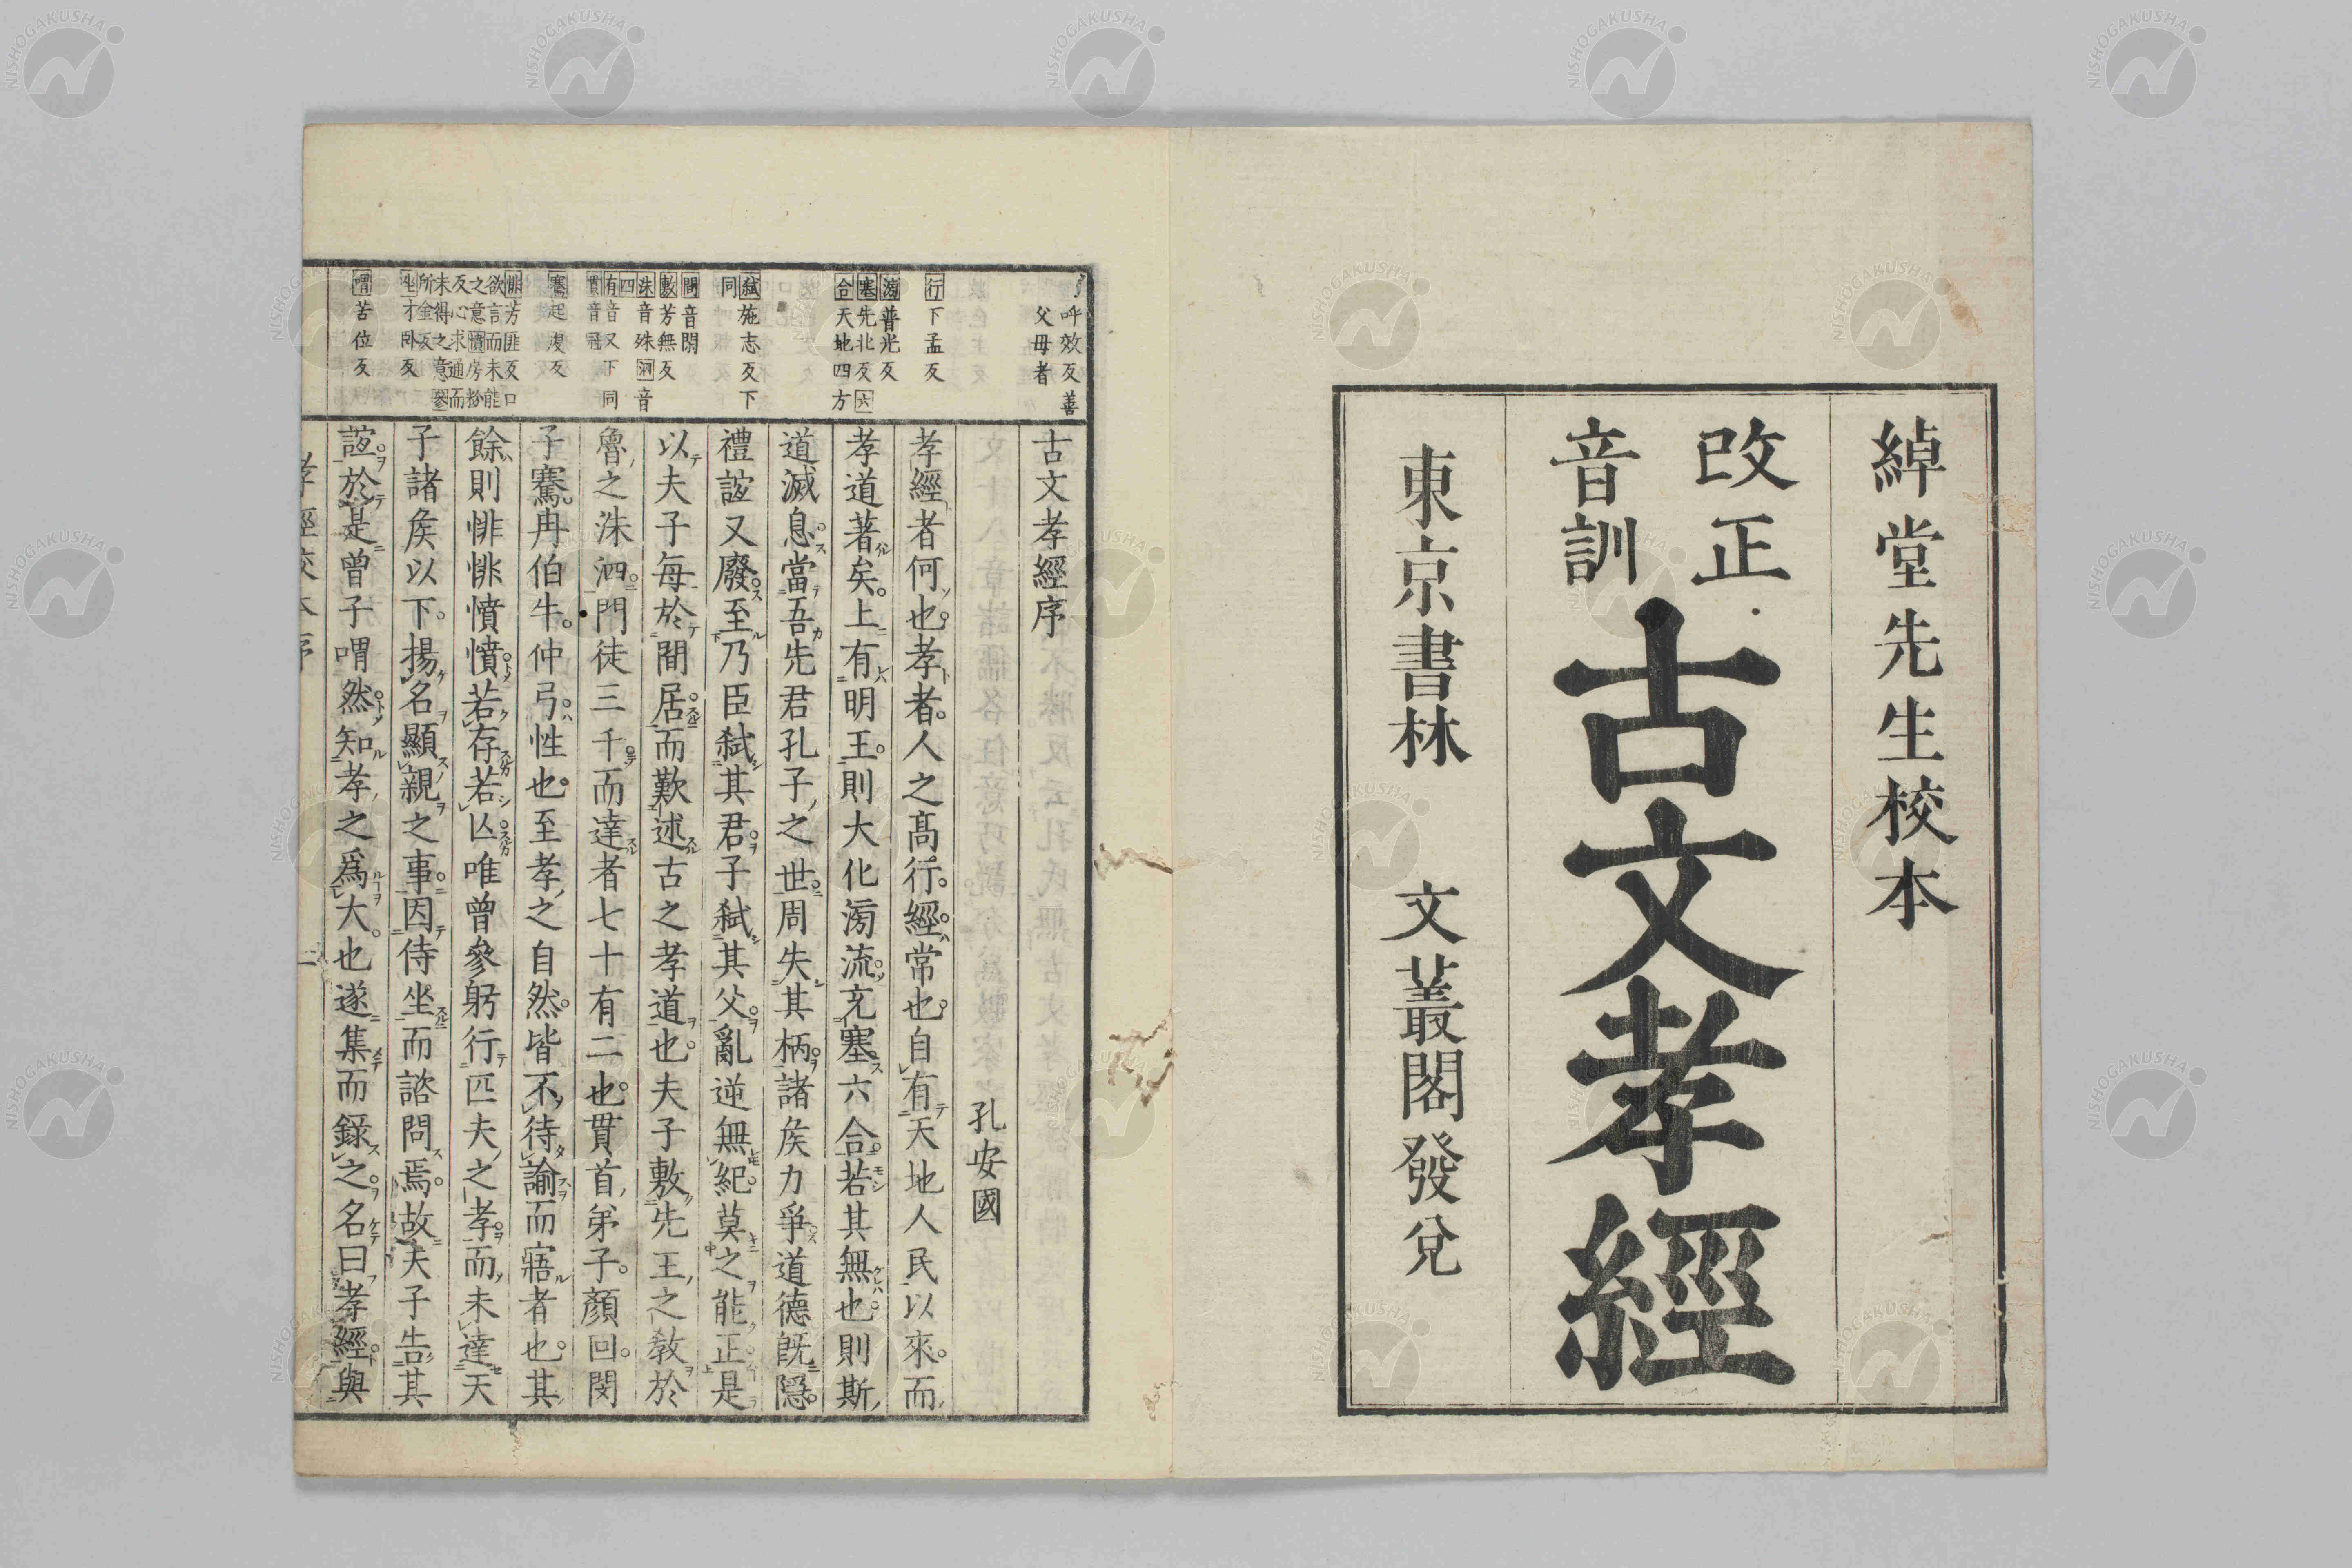 綽堂先生校本
改正
音訓
古文孝經
東京書林 文叢閣發兌
呼效反善
父母者
行下孟反
滂普光反
塞先北反六
合天地四方
弑施志反下
同
閒音閑
敷芳無反
洙音殊泗音
四
有音又下同
貫音冠
騫起虔反
悱芳匪反口
欲言而未能
之意憤房粉
反心求通而
未得之意參
所金反
坐才臥反
喟苦位反
古文孝經序
孔安國
孝經者何也孝者人之髙行經常也自有天地人民以來而
孝道著矣上有明王則大化滂流充塞六合若其無也則斯
道滅息當吾先君孔子之世周失其柄諸矦力爭道德旣隱
禮誼又廢至乃臣弑其君子弑其父亂逆無紀莫之能正是
以夫子每於閒居而歎述古之孝道也夫子敷先王之敎於
魯之洙泗門徒三千而達者七十有二也貫首弟子顏回閔
子騫冉伯牛仲弓性也至孝之自然皆不待諭而寤者也其
餘則悱悱憤憤若存若亾唯曾參躬行匹夫之孝而未達天
子諸矦以下揚名顯親之事因侍坐而諮問焉故夫子告其
誼於是曾子喟然知孝之爲大也遂集而錄之名曰孝經與